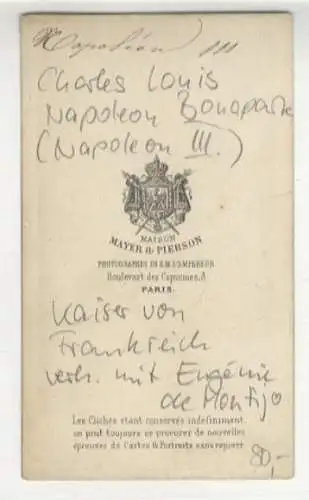 Napoléon III
Charles Louis
Napoleon Bonaparte
(Napoleon III.)
MAISON
MAYER & PIERSON
PHOTOGRAPHES DE S.M. L'EMPEREUR
Boulevart des Capucines, 3
PARIS.
Kaiser von
Frankreich
verh. mit Eugénie
de Montijo
Les Clichés étant conservés indéfiniment.
on peut toujours se procurer de nouvelles
épreuves de Cartes & Portraits sans reposer
80,-